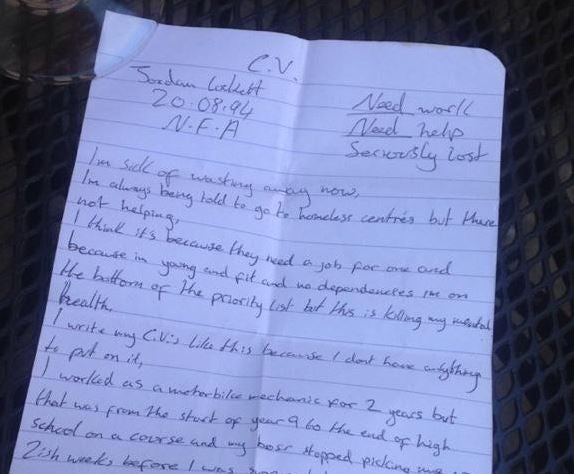 C.V.
Jordan Lockett
20.08.94
N.F.A
Need work
Need help
Seriously lost
Im sick of wasting away now,
Im always being told to go to homeless centres but there
not helping,
I think it's because they need a job for one and
because im young and fit and no dependencies im on
the bottom of the priority list but this is killing my mental
health.
I write my C.V.s like this because I dont have anything
to put on it,
I worked as a motorbike mechanic for 2 years but
that was from the start of year 9 to the end of high
school on a course and my boss stopped picking me
2ish weeks before I was